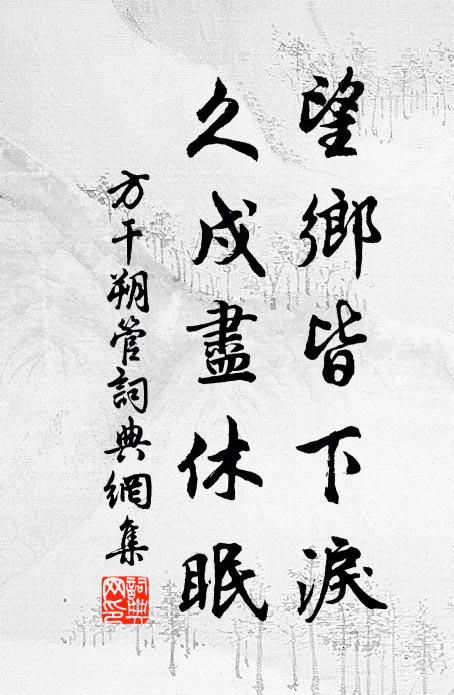 望鄉皆下淚
久戍盡休眠
方干朔管詞典網集
詞典